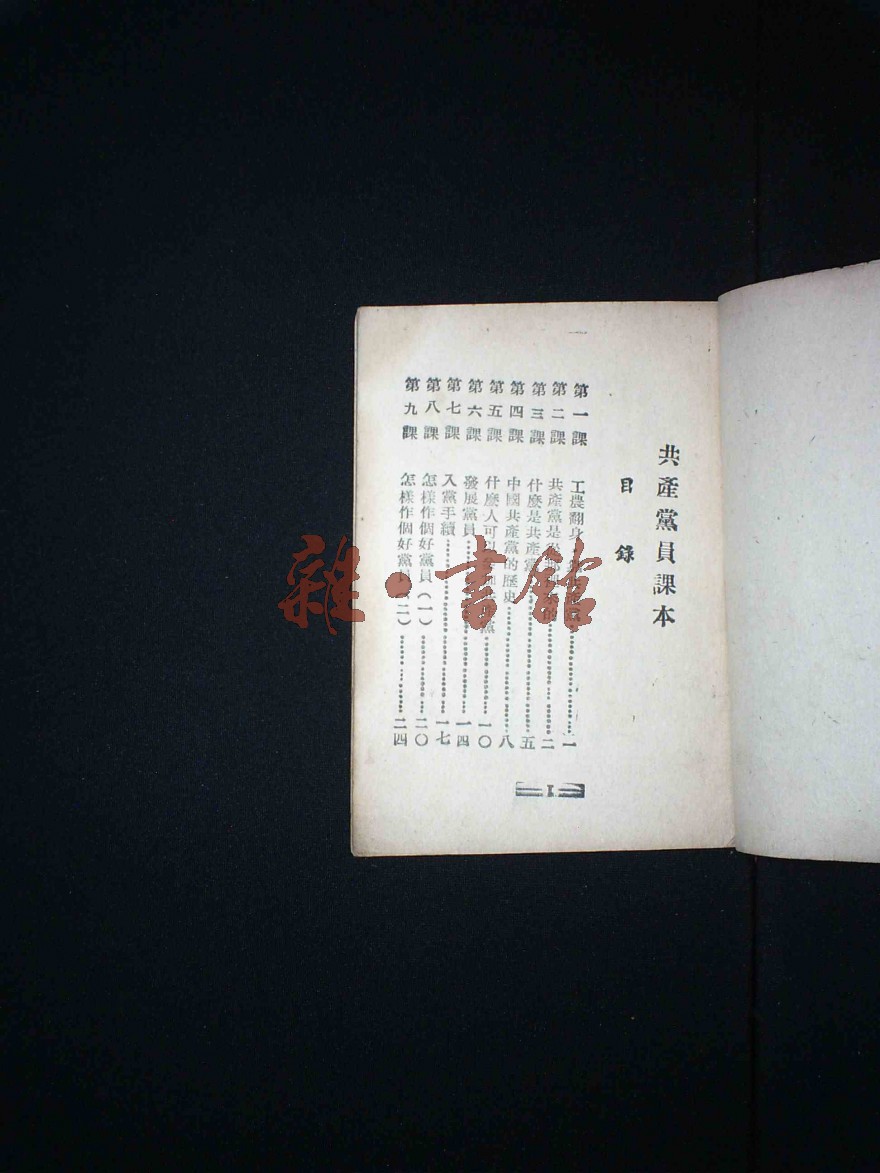 共產黨員課本
目錄
第一課 工農翻身 一
第二課 共產黨是 的 二
第三課 什麼是共產黨 五
第四課 中國共產黨的歷史 八
第五課 什麼人可以 黨 一〇
第六課 發展黨員 一四
第七課 入黨手續 一七
第八課 怎樣作個好黨員(一) 二〇
第九課 怎樣作個好黨員(二) 二四
I
雜·書館